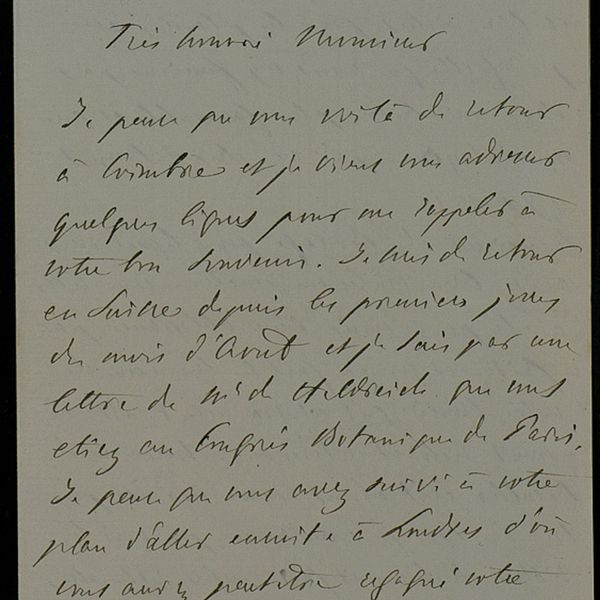 Très honoré Monsieur
Je pense que vous voilà de retour
à Coimbre et je viens vous adresser
quelques lignes pour me rappeler à
votre bon souvenir. Je suis de retour
en Suisse depuis les premiers jours
du mois d'Avout et je sais par une
lettre de Mr de Heldreich que vous
etiez au Congrès Botanique de Paris.
Je pense que vous avez suivi à votre
plan d'aller ensuite à Londres d'où
vous aurez peutetre regagné votre